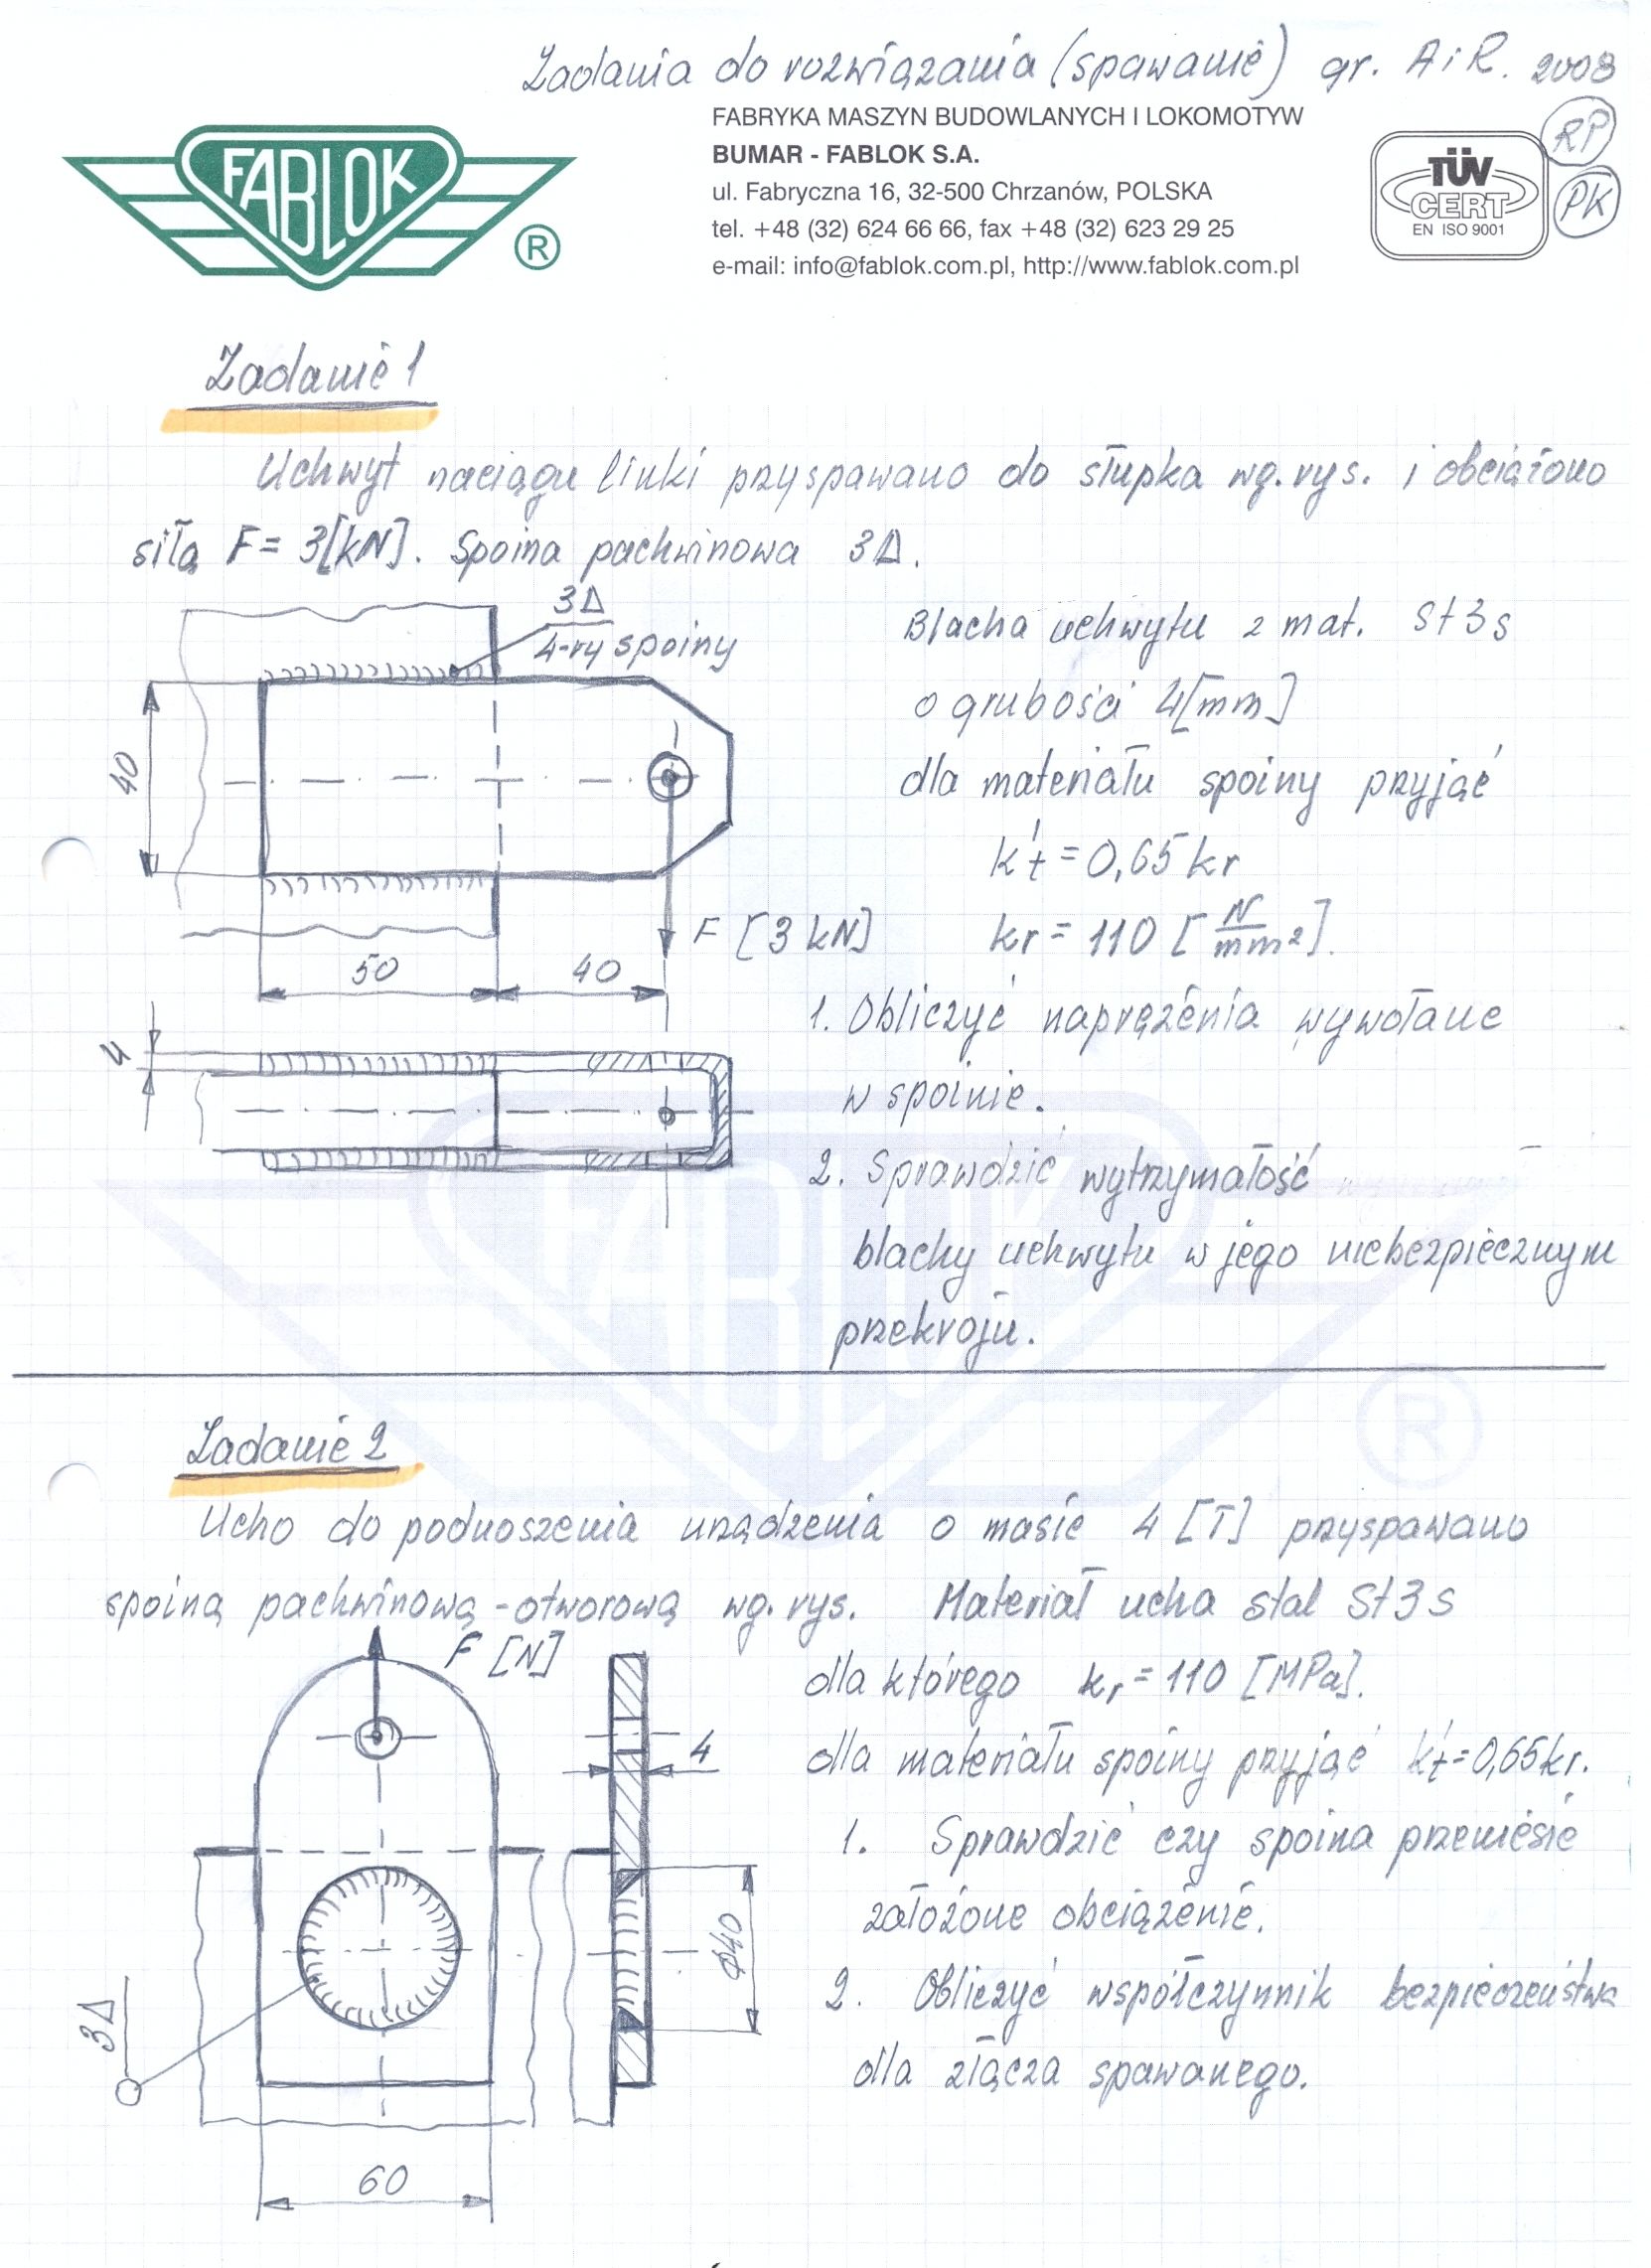 Zadania do rozwiązania (spawanie) gr. AiR. 2008
RP
PK
FABRYKA MASZYN BUDOWLANYCH I LOKOMOTYW
BUMAR - FABLOK S.A.
ul. Fabryczna 16, 32-500 Chrzanów, POLSKA
tel. +48 (32) 624 66 66, fax +48 (32) 623 29 25
e-mail: info@fablok.com.pl, http://www.fablok.com.pl
FABLOK
®
TÜV
CERT
EN ISO 9001
Zadanie 1
Uchwyt naciągu linki przyspawano do słupka wg.rys. i obciążono
siłą F= 3[kN]. Spoina pachwinowa 3Δ.
3Δ
4-ry spoiny
40
F [3 kN]
50
40
4
Blacha uchwytu z mat. St3s
o grubości 4[mm]
dla materiału spoiny przyjąć
k't = 0,65 kr
kr = 110 [N/mm²].
1. Obliczyć naprężenia wywołane
w spoinie.
2. Sprawdzić wytrzymałość
blachy uchwytu w jego niebezpiecznym
przekroju.
FABLOK
®
Zadanie 2
Ucho do podnoszenia urządzenia o masie 4 [T] przyspawano
spoiną pachwinową-otworową wg. rys. Materiał ucha stal St3s
F [N]
4
ø40
3Δ
60
dla którego kr = 110 [MPa].
dla materiału spoiny przyjąć k't=0,65kr.
1. Sprawdzić czy spoina przeniesie
założone obciążenie.
2. Obliczyć współczynnik bezpieczeństwa
dla złącza spawanego.